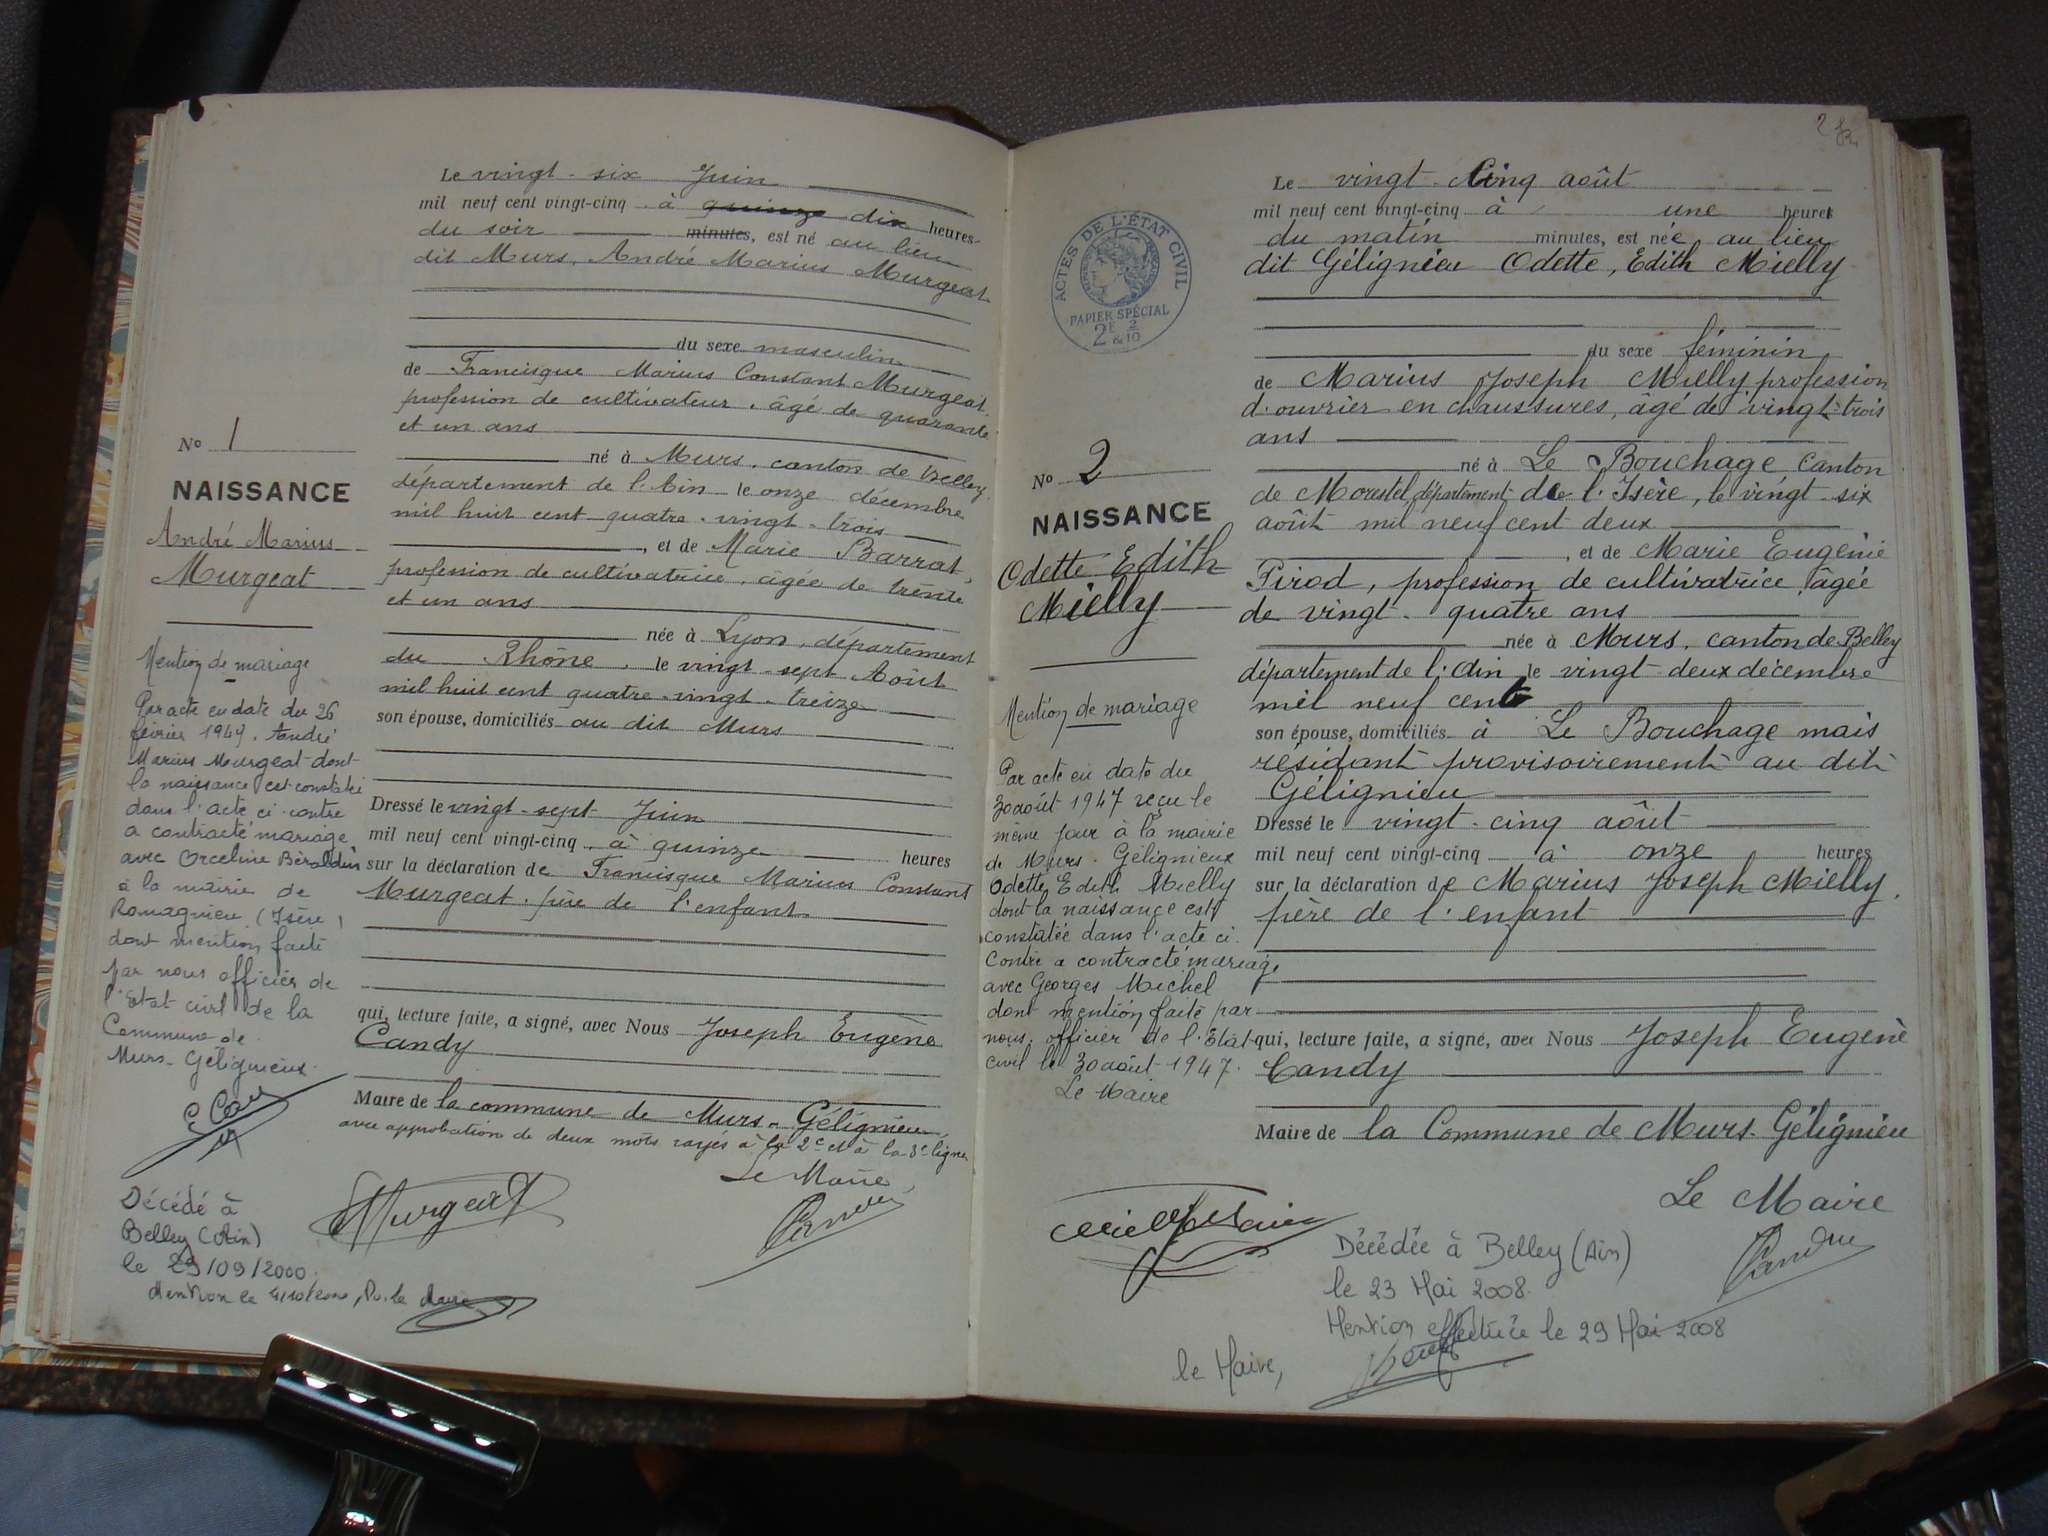 Le vingt-six Juin
mil neuf cent vingt-cinq à quinze dix heures
du soir minutes, est né au lieu
dit Murs, André Marius Murgeat
du sexe masculin
de Francisque Marius Constant Murgeat
profession de cultivateur, âgé de quarante
et un ans
né à Murs, canton de Belley
département de l'Ain le onze décembre
mil huit cent quatre-vingt-trois
, et de Marie Barrat,
profession de cultivatrice, âgée de trente
et un ans
née à Lyon, département
du Rhône, le vingt-sept Août
mil huit cent quatre-vingt-treize
son épouse, domiciliés au dit Murs
Dressé le vingt-sept Juin
mil neuf cent vingt-cinq, à quinze heures
sur la déclaration de Francisque Marius Constant
Murgeat, père de l'enfant
qui, lecture faite, a signé, avec Nous Joseph Eugène
Candy
Maire de la commune de Murs-Gélignieu
avec approbation de deux mots rayés à la 2e et à la 3e ligne
Le Maire,
Murgeat
No 1
NAISSANCE
André Marius
Murgeat
Mention de mariage
Par acte en date du 26
février 1949, André
Marius Murgeat dont
la naissance est constatée
dans l'acte ci-contre
a contracté mariage
avec Orceline
à la mairie de
Romagnieu (Isère)
dont mention faite
par nous officier de
l'Etat civil de la
Commune de
Murs-Gélignieux.
Décédé à
Belley (Ain)
le 29/09/2000
Mention le
2
Le vingt-Cinq août
mil neuf cent vingt-cinq à une heures
du matin minutes, est née au lieu
dit Gélignieu Odette, Edith Mielly
du sexe féminin
de Marius Joseph Mielly profession
d'ouvrier en chaussures, âgé de vingt-trois
ans
né à Le Bouchage Canton
de Morestel département de l'Isère, le vingt-six
août mil neuf cent deux
, et de Marie Eugènie
Pirod, profession de cultivatrice, âgée
de vingt-quatre ans
née à Murs, canton de Belley
département de l'Ain le vingt-deux décembre
mil neuf cent
son épouse, domiciliés à Le Bouchage mais
résidant provisoirement au dit
Gélignieu
Dressé le vingt-cinq août
mil neuf cent vingt-cinq à onze heures
sur la déclaration de Marius Joseph Mielly,
père de l'enfant
qui, lecture faite, a signé, avec Nous Joseph Eugène
Candy
Maire de la Commune de Murs-Gélignieu
Le Maire
ACTES DE L'ÉTAT CIVIL
PAPIER SPÉCIAL
2F & 2/10
No 2
NAISSANCE
Odette Edith
Mielly
Mention de mariage
Par acte en date du
30 août 1947 reçu le
même jour à la mairie
de Murs-Gélignieux
Odette, Edith Mielly
dont la naissance est
constatée dans l'acte ci-
Contre a contracté mariage
avec Georges Michel
dont mention faite par
nous, officier de l'Etat-
civil le 30 août 1947.
Le Maire
Décédée à Belley (Ain)
le 23 Mai 2008.
Mention effectuée le 29 Mai 2008
le Maire,